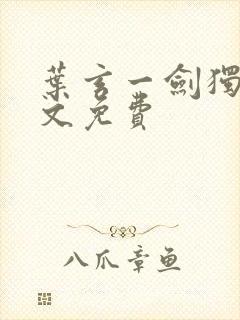 葉言一劍獨
文免費
八爪章鱼